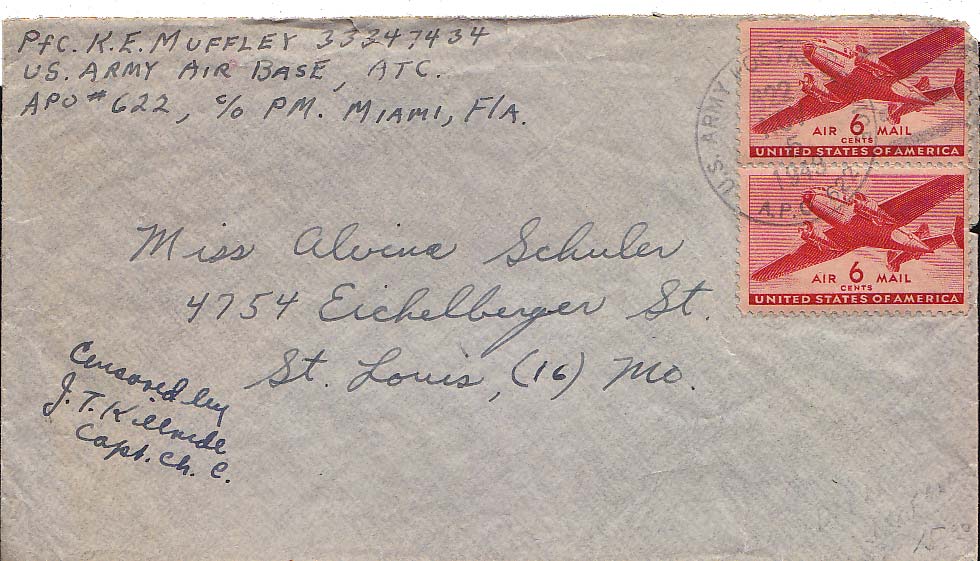 Pfc. K. E. MUFFLEY 33347434
US. ARMY AIR BASE, ATC.
APO # 622, c/o PM. MIAMI, F/A.
U.S. ARMY
1943
A.P.O. 622
AIR 6 MAIL
CENTS
UNITED STATES OF AMERICA
AIR 6 MAIL
CENTS
UNITED STATES OF AMERICA
Miss Alvina Schuler
4754 Eichelberger St.
St. Louis, (16) Mo.
Censored by
J. T. Killride
Capt. Ch. C.